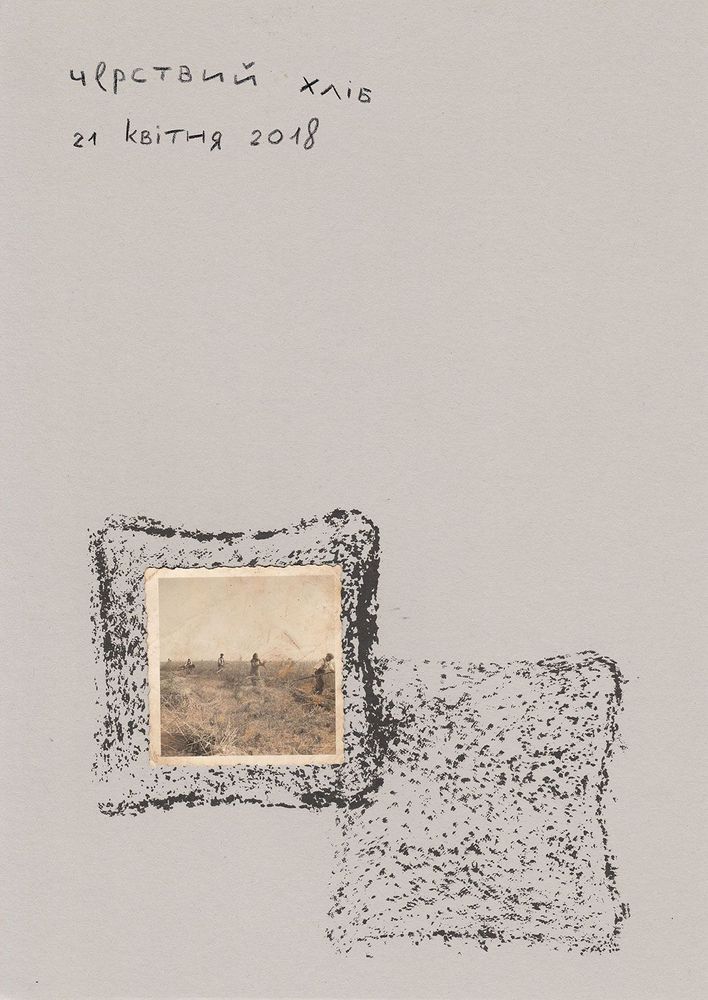 черствий хліб
21 квітня 2018